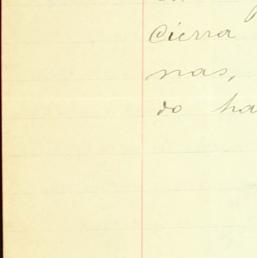 cierra
nas,
do ha